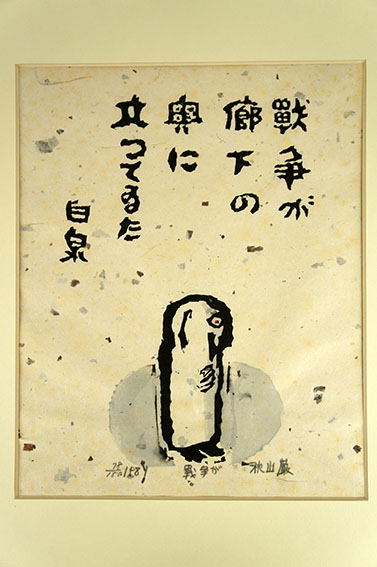 戰争が
廊下の
奥に
立つてゐた
白泉
戦争が
秋山巌